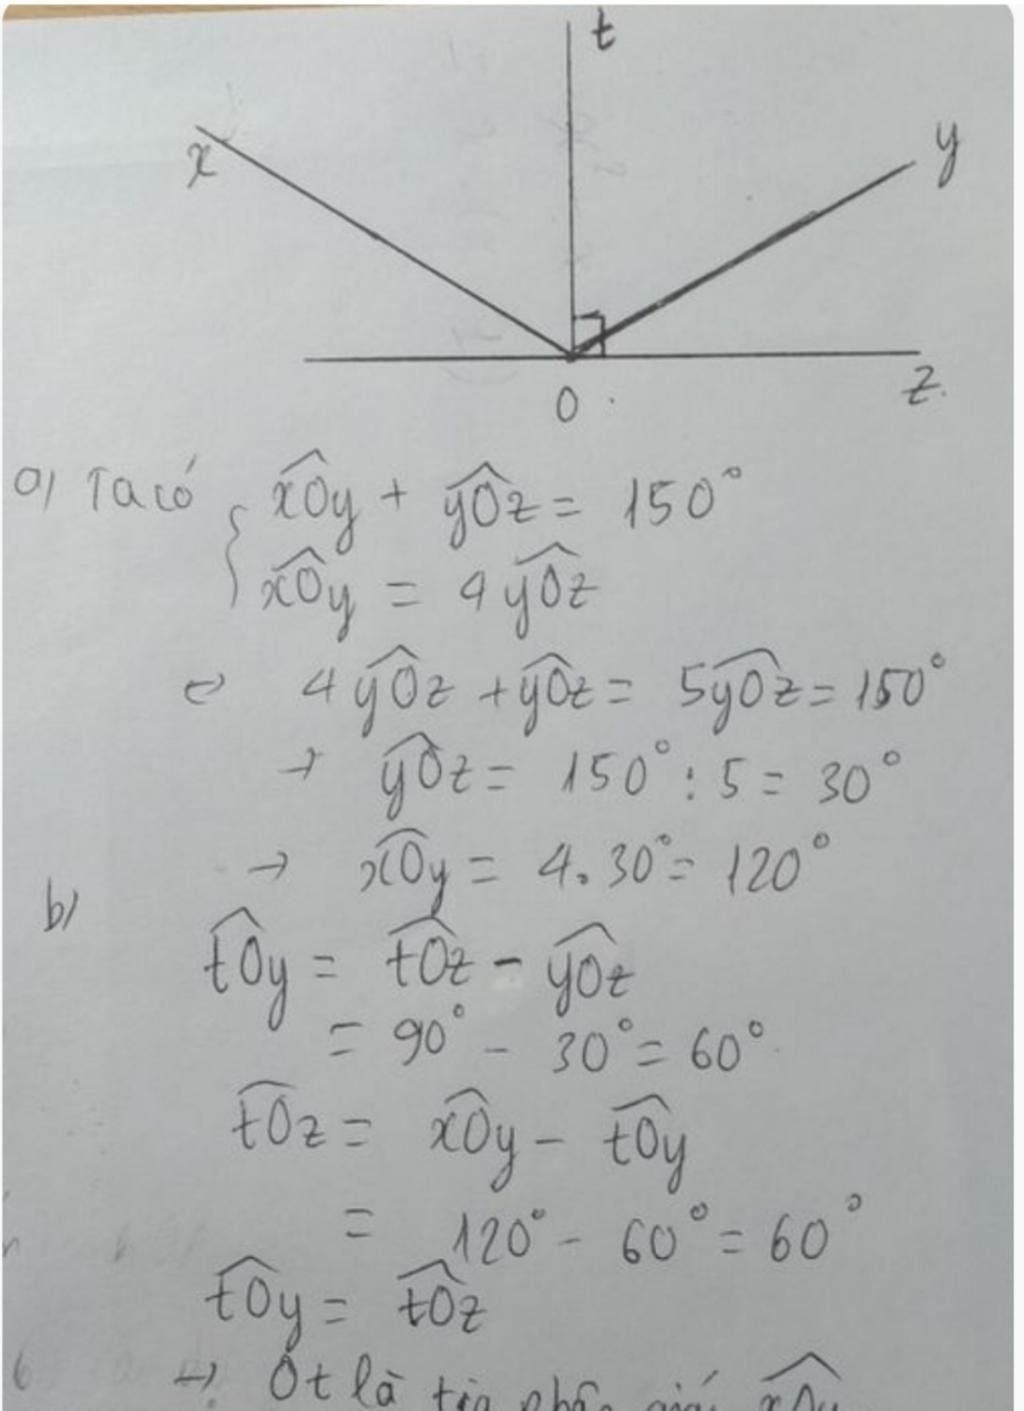 t
x
y
O
z
a) Ta có
{ x̂Oy + ŷOz = 150°
x̂Oy = 4 ŷOz
⇔ 4 ŷOz + ŷOz = 5 ŷOz = 150°
→ ŷOz = 150° : 5 = 30°
→ x̂Oy = 4 . 30° = 120°
b)
t̂Oy = t̂Oz - ŷOz
= 90° - 30° = 60°
t̂Oz = x̂Oy - t̂Oy
= 120° - 60° = 60°
t̂Oy = t̂Oz
→ Ot là tia phân giác x̂Oy